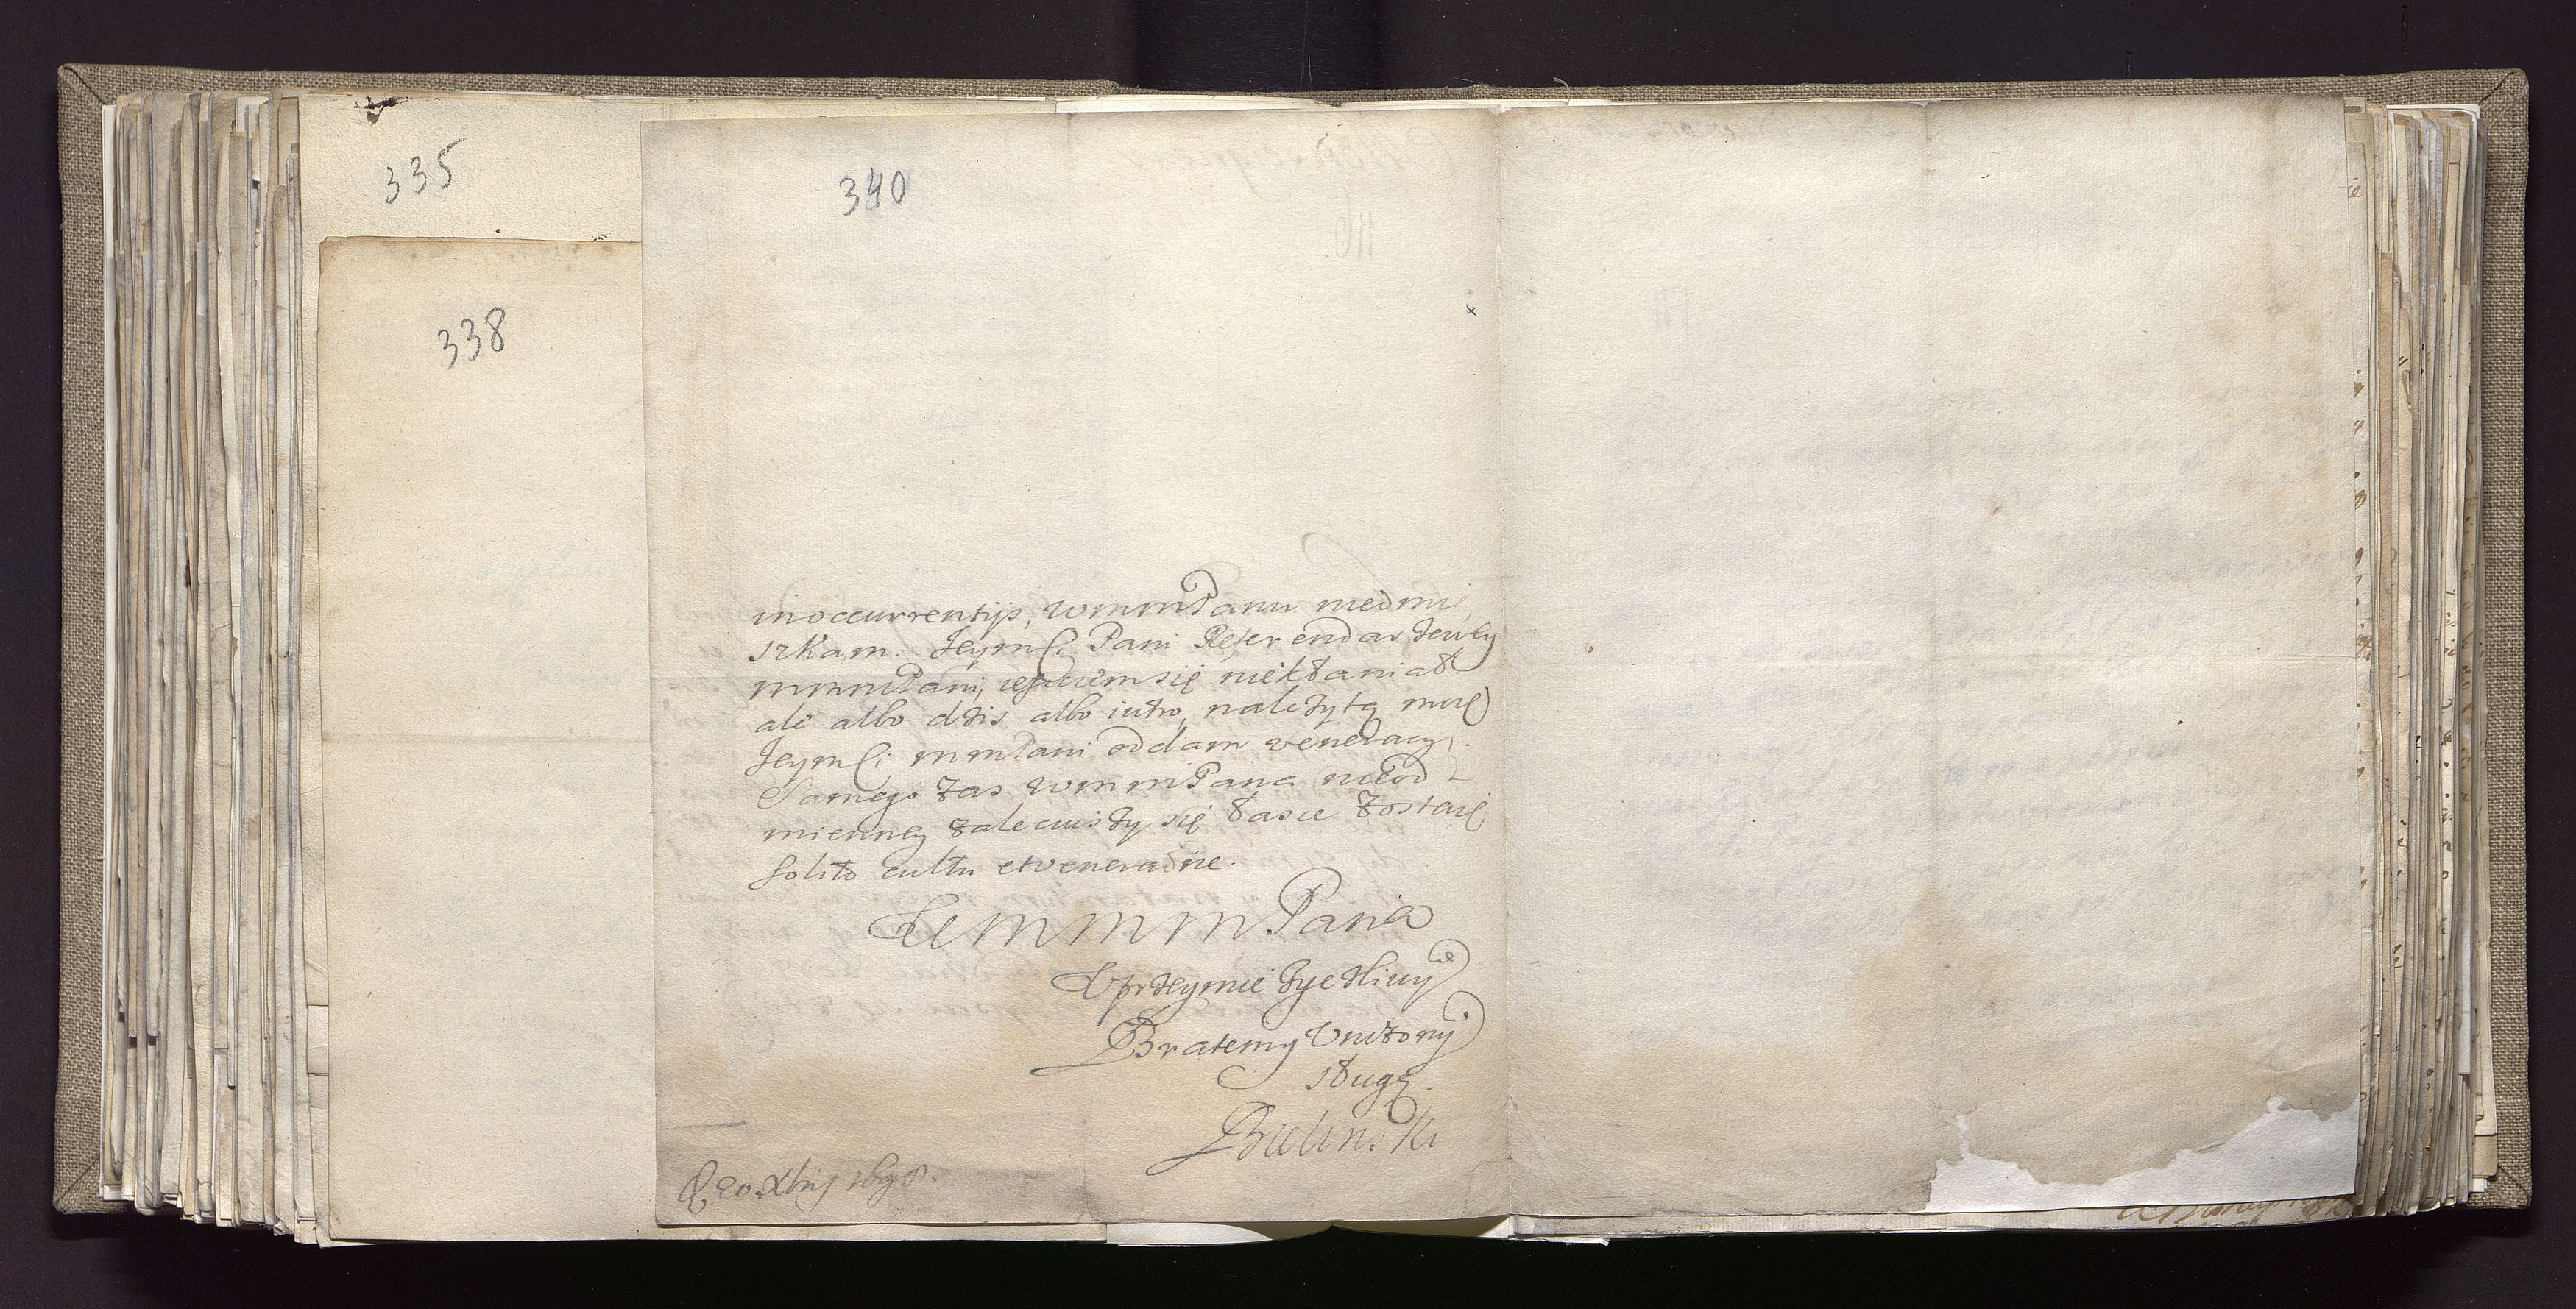 335
338
340
in occurrentijs, WmmPanu nieomie
szkam. Jeymsci Pani Referendarzewey
mmmPani, ieszczem się niekłaniał
ale albo dzis albo iutro, należytą moię
Jeymsci mmPani oddam veneracyą.
Samego zas WmmPana nieod
mienney zalecaiszy się łasce zostaię
solito cultu et veneraõne.
WmmmPana
Uprzeymie życzliwy
Bratem y Uniżony
sługą.
Bielinski
20. Xbrij 1698.